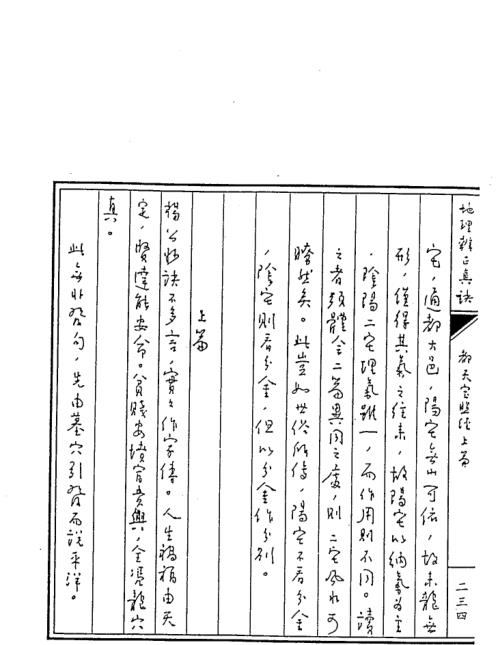 地理辨正真訣
都天寶照經上篇
二三四
宅,通都大邑,陽宅無山可依,故來龍無
形,僅得其氣之往來,故陽宅以納氣為主
。陰陽二宅理氣雖一,而作用則不同。讀
之者類體全二篇異同之處,則二宅風水可
瞭然矣。此豈如世俗所傳,陽宅不看分金
,陰宅則看分金,但以分金作分別。
上篇
楊公妙訣不多言,實實作家傳。人生禍福由天
定,賢達能安命。貧賤安墳富貴興,全憑龍穴
真。
此無非發句,先由墓穴引發而說平洋。